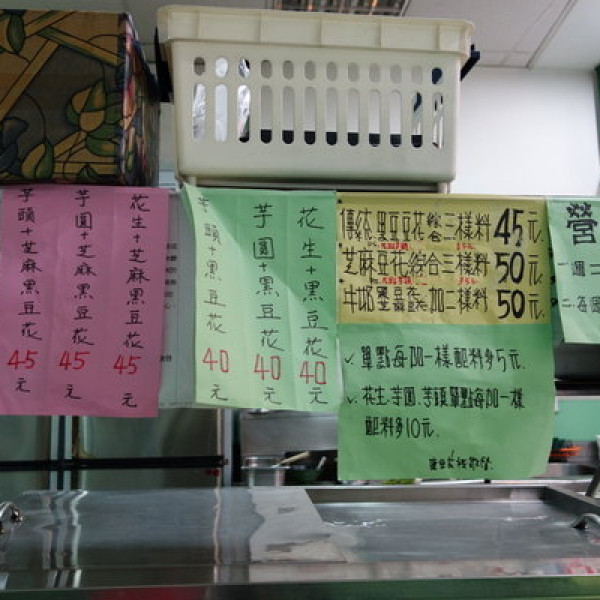 芋頭+芝麻黑豆花 45元
芋圓+芝麻黑豆花 45元
花生+芝麻黑豆花 45元
芋頭+黑豆花 40元
芋圓+黑豆花 40元
花生+黑豆花 40元
傳統.黑豆豆花綜合三樣料 45元
芝麻豆花綜合三樣料 50元
加二樣料 50元
✓單點每加一樣配料多5元.
✓花生.芋圓.芋頭單點每加一樣
配料多10元.
營
一.週二
二.每週